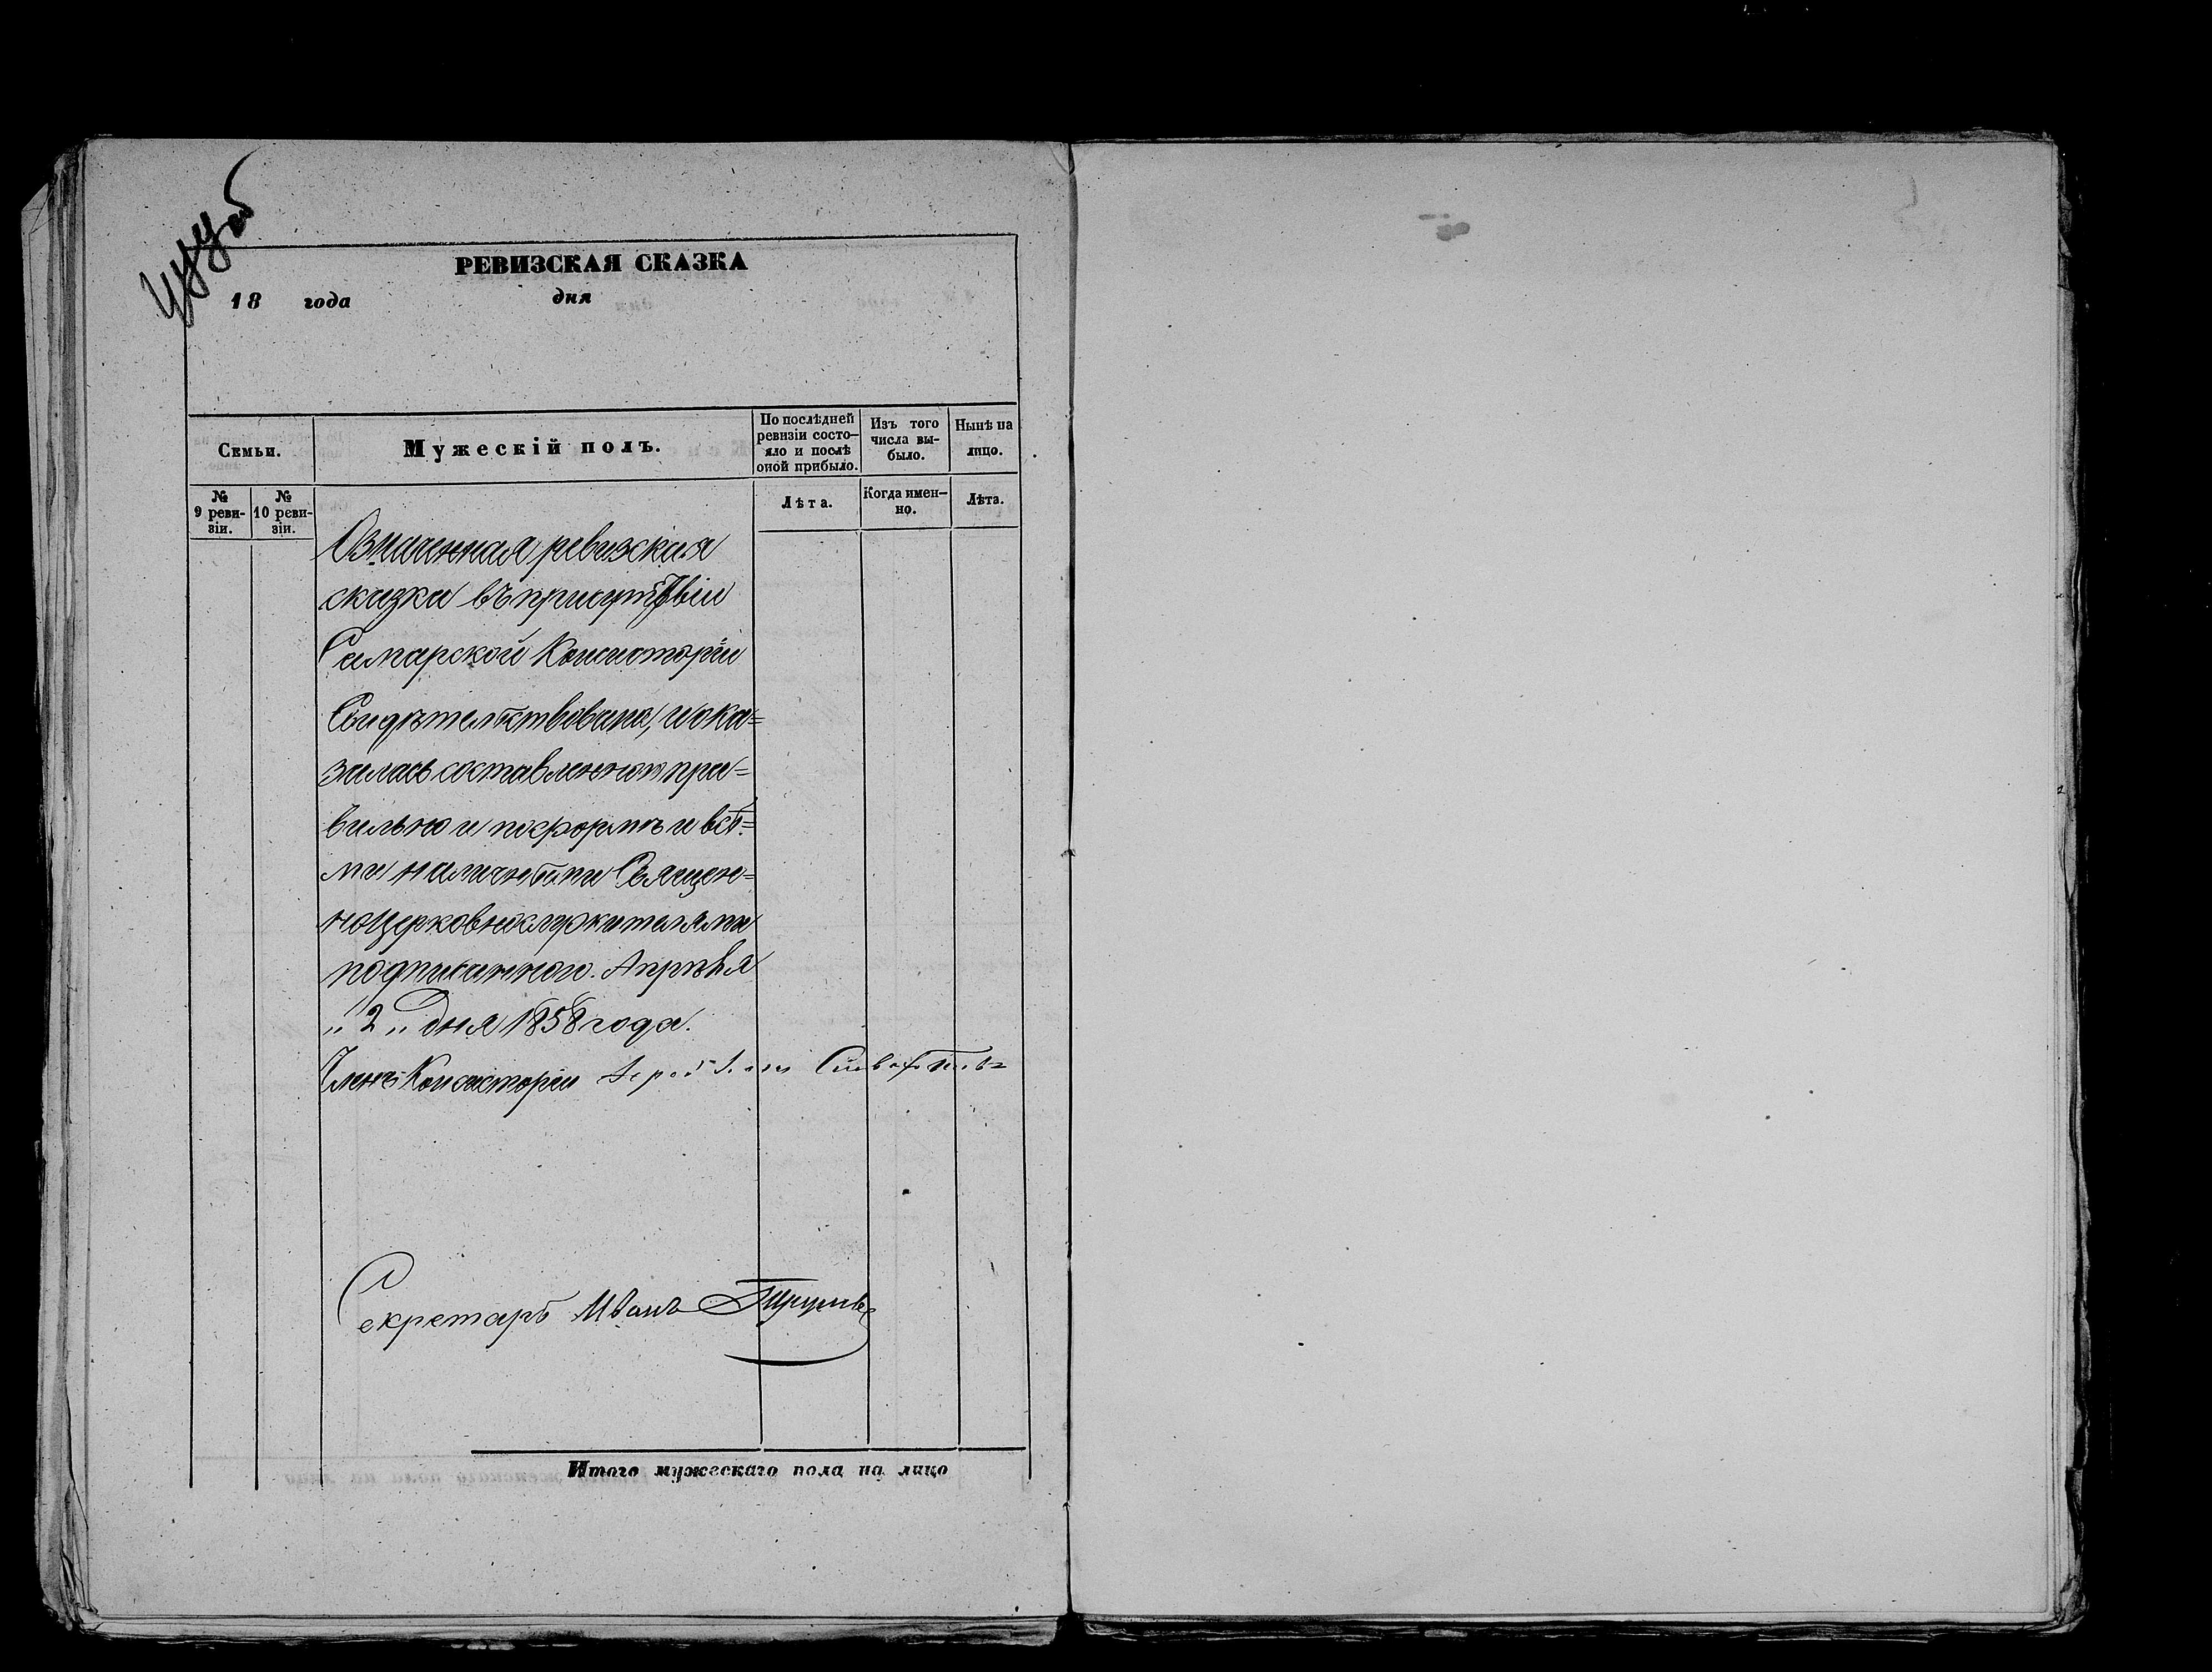 РЕВИЗСКАЯ СКАЗКА
18 года дня
Семьи.
Мужескій полъ.
По послѣдней
ревизіи состо-
яло и послѣ
оной прибыло.
Изъ того
числа вы-
было.
Нынѣ на
лицо.
№
9 реви-
зіи.
№
10 реви-
зіи.
Лѣта.
Когда имен-
но.
Лѣта.
Означенная ревизская
сказка въ присутствіи
Самарской Консисторіи
Свидѣтельствована, и ока=
залась составленною пра=
вильно и по формѣ и всѣ=
ми наличными Священ=
ноцерковнослужителями
подписанною. Апрѣля
"2" дня 1858 года.
Членъ Консисторіи Іерей
Секретарь Иванъ
Итого мужескаго пола на лицо